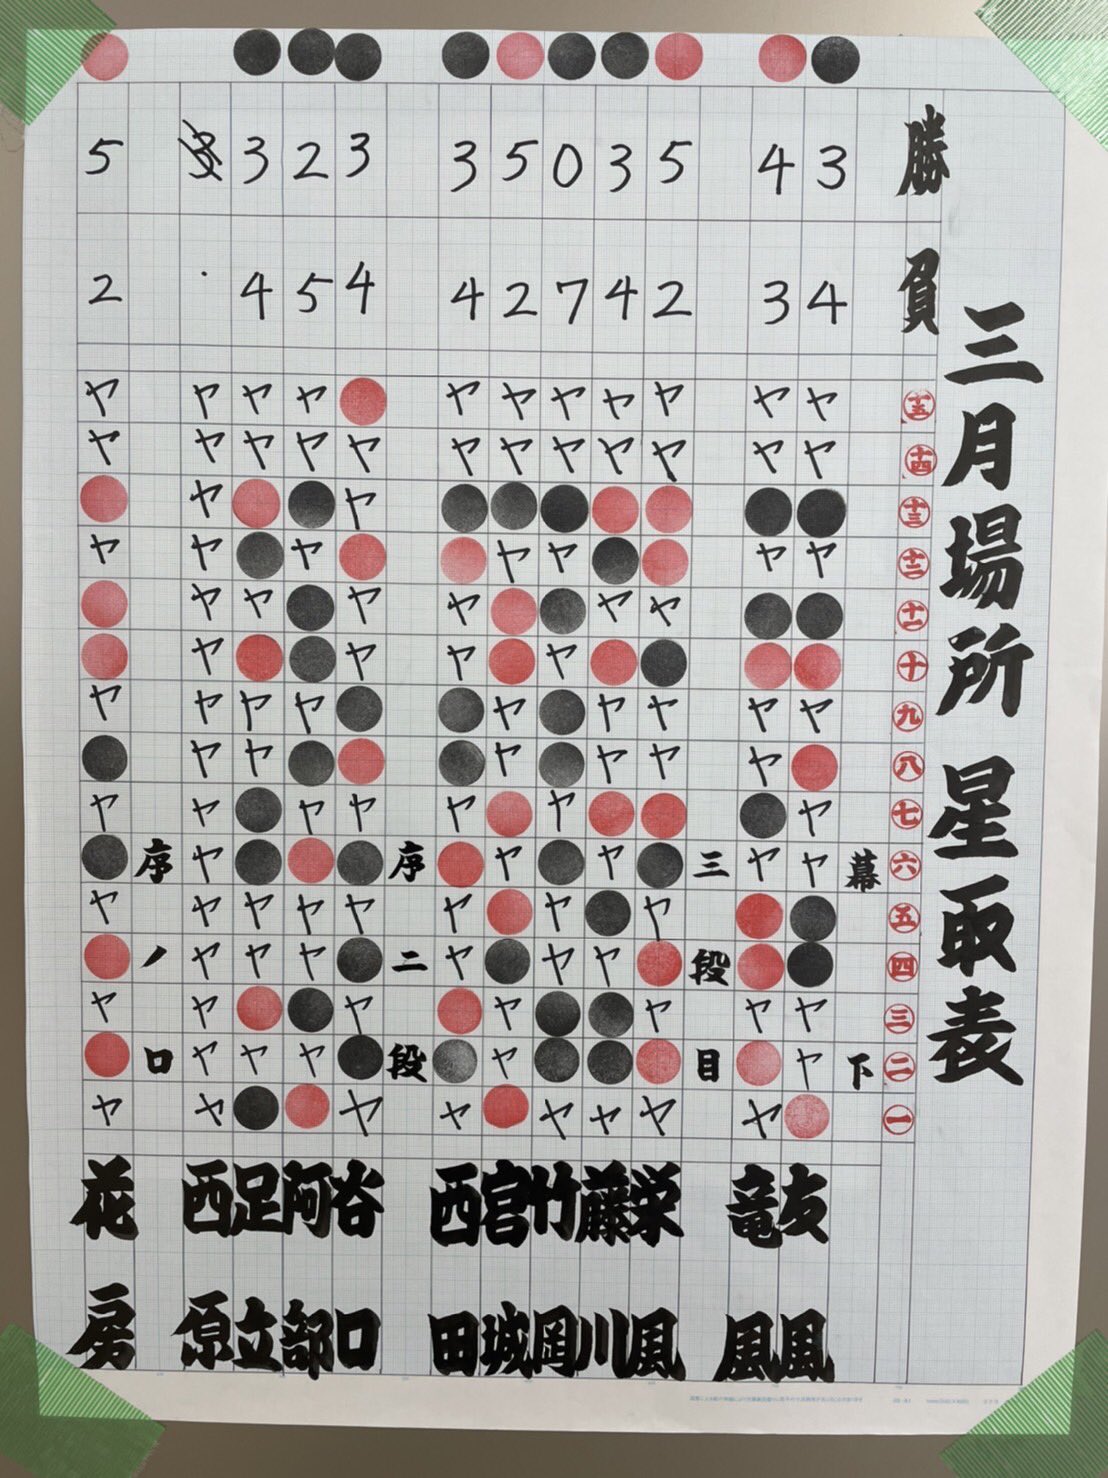 三月場所 星取表
勝 負 十五 十四 十三 十二 十一 十 九 八 七 六 五 四 三 二 一
幕下
3 4 ヤ ヤ ヤ ヤ ヤ ヤ ヤ ヤ 友風
4 3 ヤ ヤ ヤ ヤ ヤ ヤ ヤ ヤ 竜風
三段目
5 2 ヤ ヤ ヤ ヤ ヤ ヤ ヤ ヤ 栄風
3 4 ヤ ヤ ヤ ヤ ヤ ヤ ヤ ヤ 藤川
0 7 ヤ ヤ ヤ ヤ ヤ ヤ ヤ ヤ 竹岡
5 2 ヤ ヤ ヤ ヤ ヤ ヤ ヤ ヤ 宮城
3 4 ヤ ヤ ヤ ヤ ヤ ヤ ヤ ヤ 西田
序二段
3 4 ヤ ヤ ヤ ヤ ヤ ヤ ヤ ヤ 谷口
2 5 ヤ ヤ ヤ ヤ ヤ ヤ ヤ ヤ 阿部
3 4 ヤ ヤ ヤ ヤ ヤ ヤ ヤ ヤ 足立
ヤ ヤ ヤ ヤ ヤ ヤ ヤ ヤ ヤ ヤ ヤ ヤ ヤ ヤ ヤ 西原
序ノ口
5 2 ヤ ヤ ヤ ヤ ヤ ヤ ヤ ヤ 花房